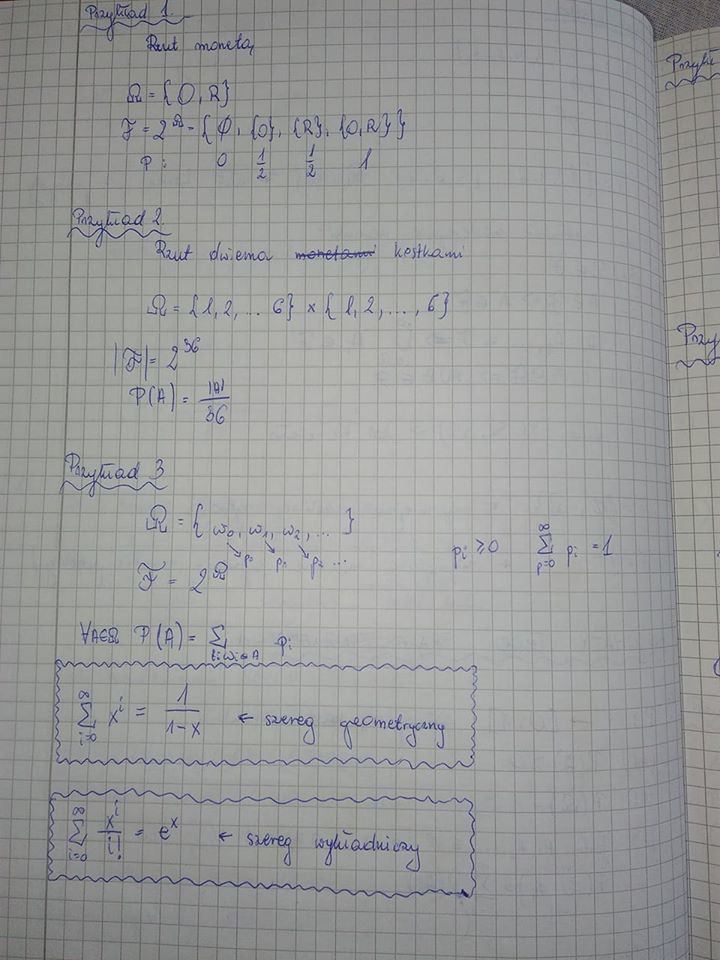 Przykład 1.
Rzut monetą
Ω = {O, R}
F = 2^Ω = {∅, {O}, {R}, {O, R}}
P: 0 1/2 1/2 1
Przykład 2.
Rzut dwiema ~~monetami~~ kostkami
Ω = {1, 2, ... 6} × {1, 2, ..., 6}
|F| = 2^36
P(A) = |A|/36
Przykład 3
Ω = {ω₀, ω₁, ω₂, ... }
p₀ p₁ p₂ ...
pi ≥ 0 ∑_{p=0}^{∞} pi = 1
F = 2^Ω
∀A∈Ω P(A) = ∑_{i: ωi∈A} pi
∑_{i=0}^{∞} x^i = 1/(1-x) ← szereg geometryczny
∑_{i=0}^{∞} x^i/i! = e^x ← szereg wykładniczy
Przykł
Przykł